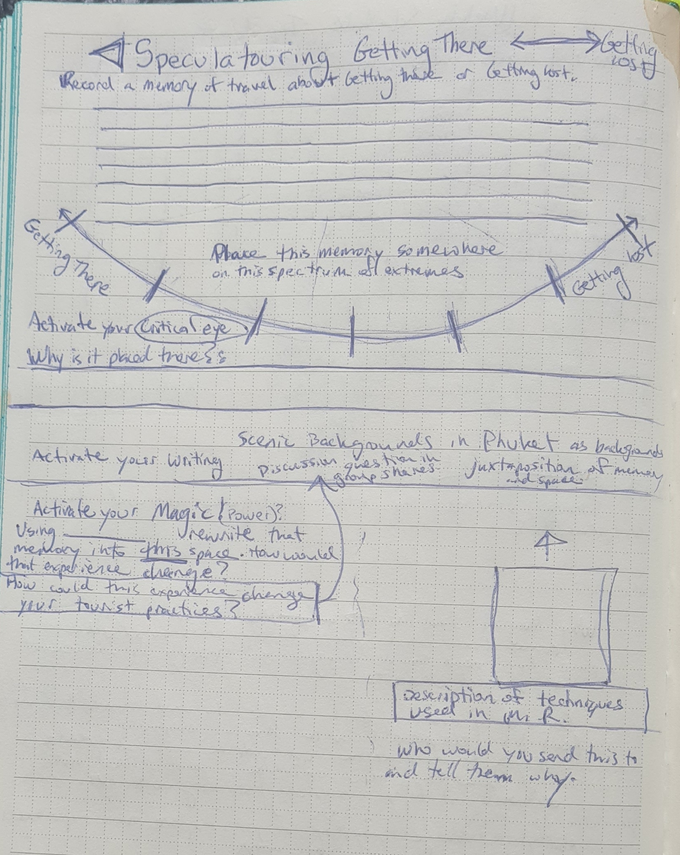 Speculatouring Getting There ⟷ Getting Lost
Record a memory of travel about Getting there or Getting lost.
Getting There
Place this memory somewhere
on this spectrum of extremes
Getting lost
Activate your Critical eye
Why is it placed there?
Scenic Backgrounds in Phuket as backgrounds
Activate your writing
Discussion question in
group shares
juxtaposition of memory
and space
Activate your Magic (Power)?
Using ________ rewrite that
memory into this space. How would
that experience change?
How could this experience change
your tourist practices?
Description of techniques
used in M.R.
Who would you send this to
and tell them why.